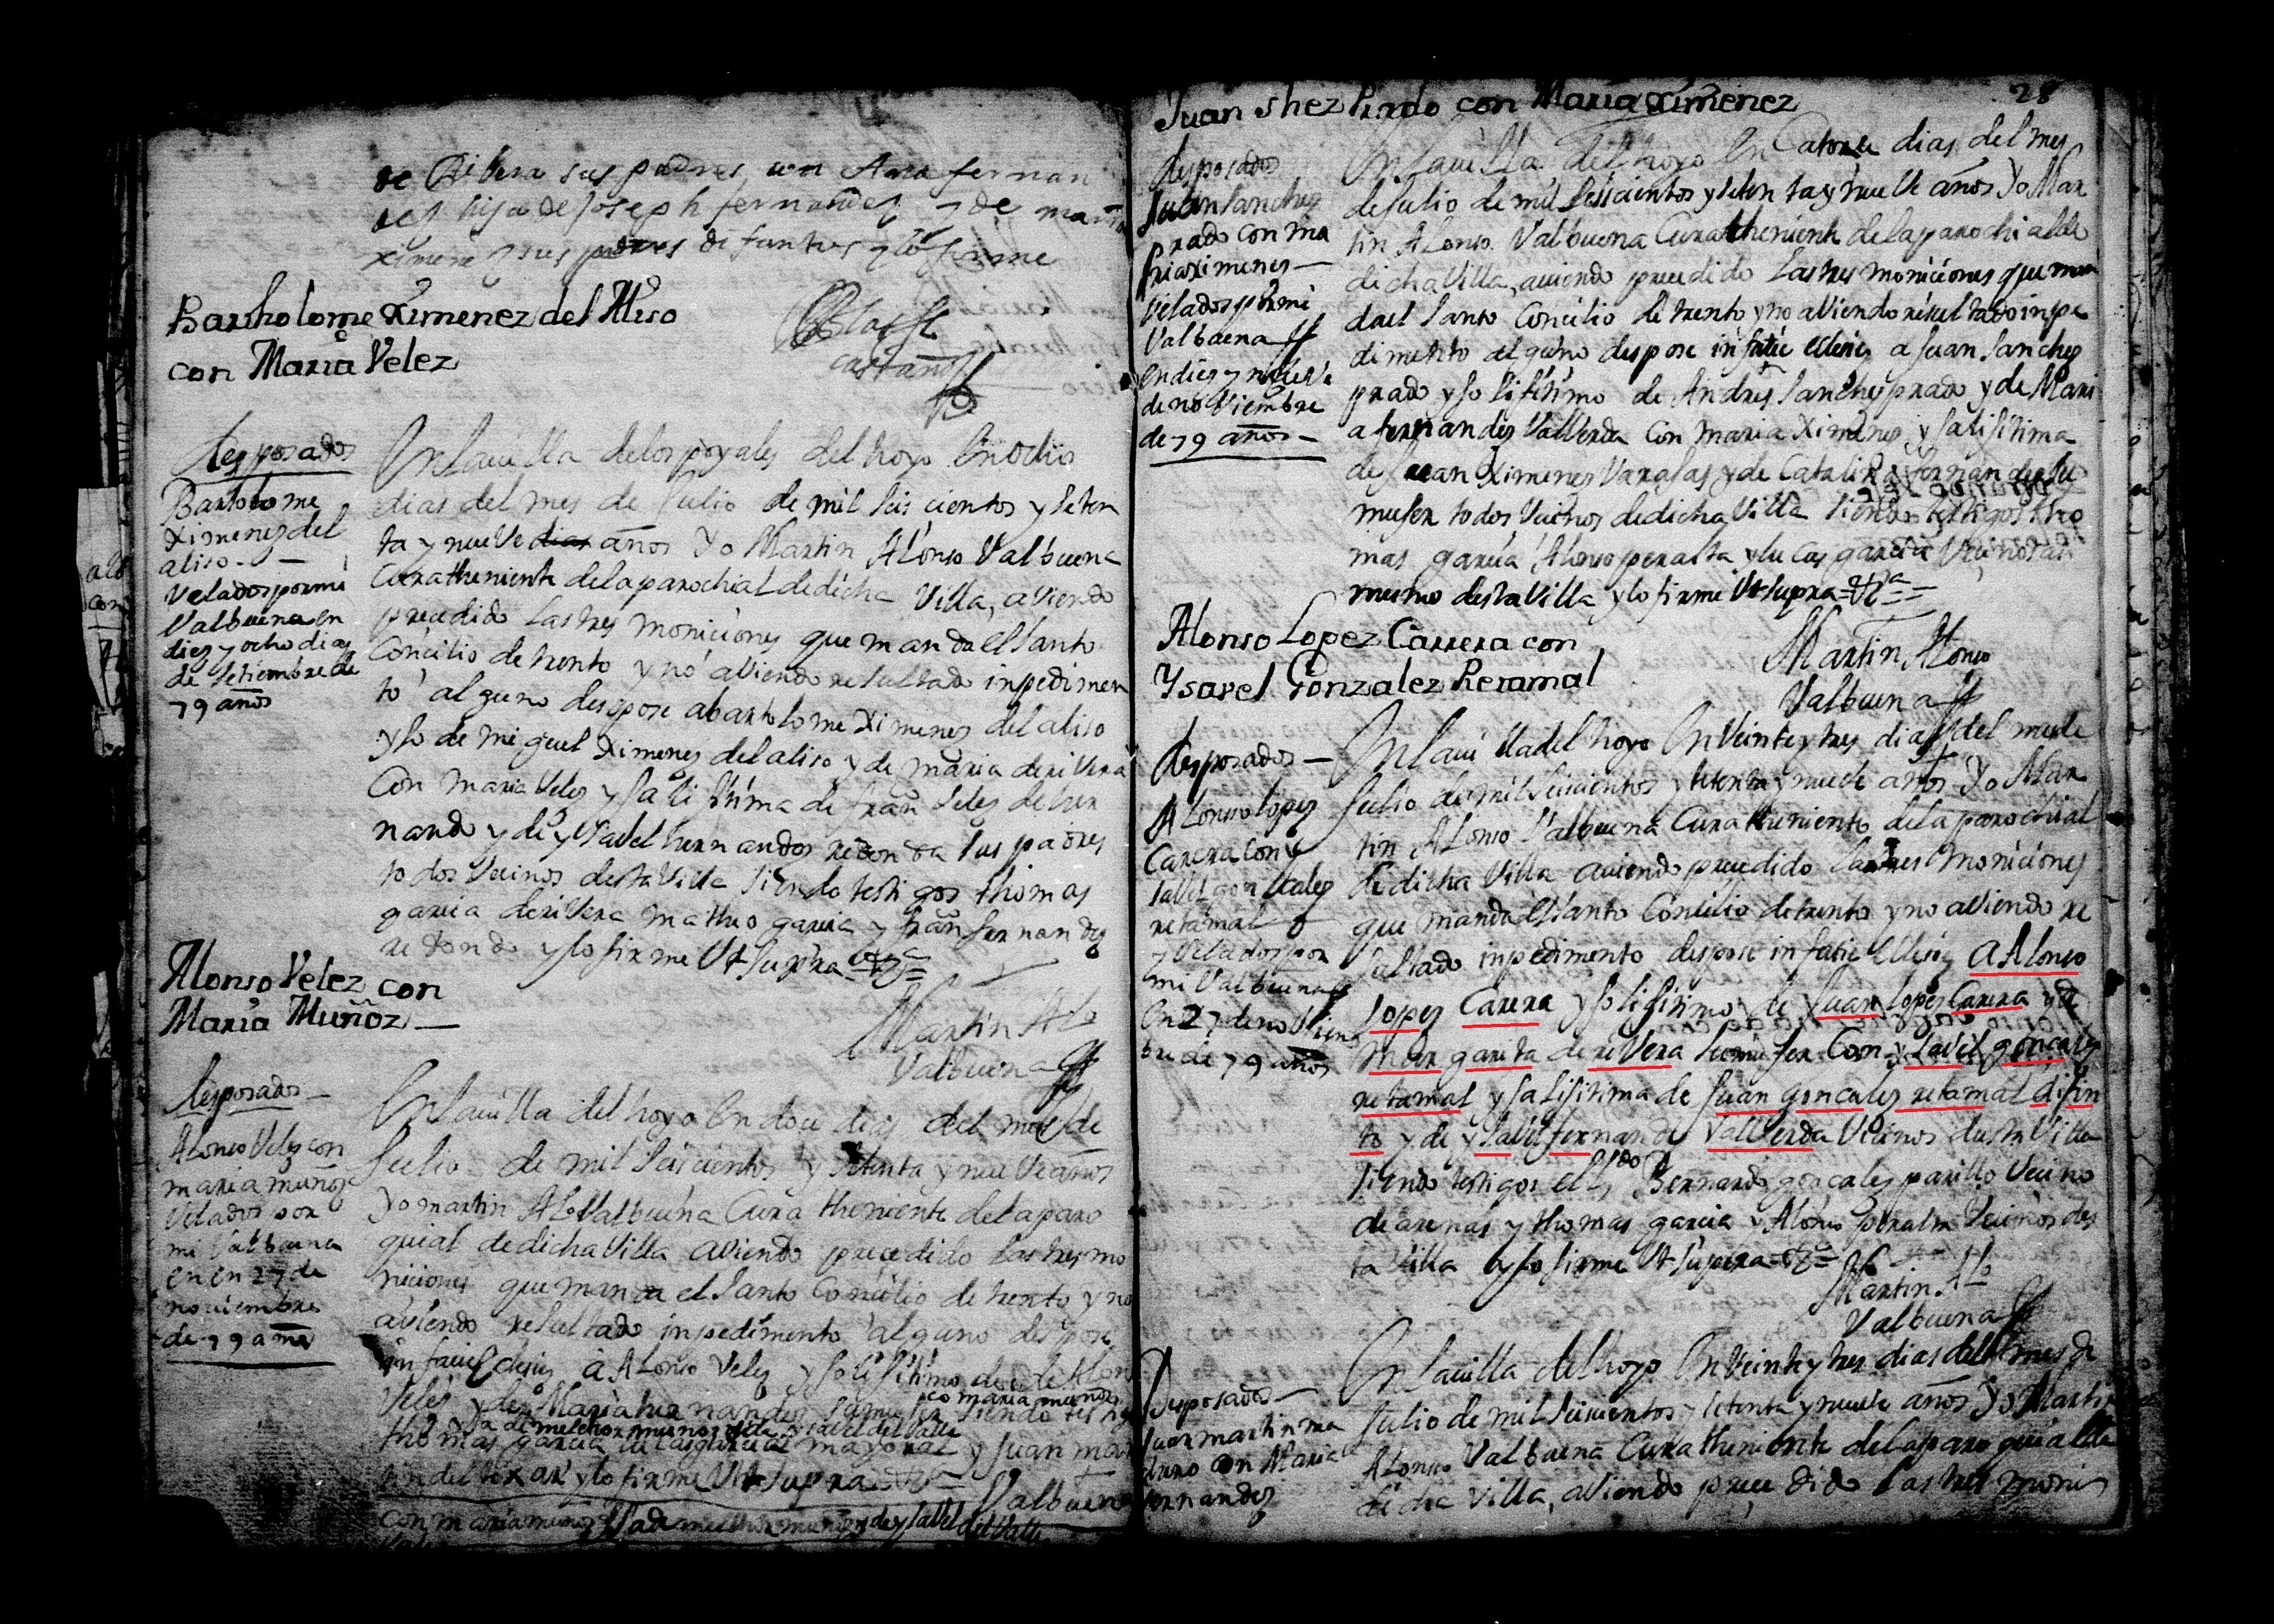 de Ribera sus padres, con Ana fernan
des hija de Joseph fernandez y de maria
ximenez sus padres difuntos y lo firme
Blas
castaño
Bartholome Ximenez del Aliso
con Maria Velez
desposados
Bartolome
Ximenez del
aliso
Velados por mi
Valbuena en
diez y ocho dias
de setiembre de
79 años
En la villa de los poyales del hoyo En ocho
dias del mes de Julio de mil seis cientos y seten
ta y nueve dias años Yo Martin Alonso Valbuena
Cura theniente de la parochial de dicha Villa, aviendo
precedido las tres moniciones que manda el santo
Concilio de trento y no aviendo resultado inpedimen
to alguno despose a bartolome Ximenes del aliso
yjo de miguel Ximenes del aliso y de maria de rivera
Con maria Veles yja lijitima de fran Veles de her
nando y de ysavel hernandos redonda sus padres
todos Vecinos desta Villa siendo testigos thomas
garcia de rivera matheo garcia y fran fernandez
redondo y lo firme Vt supra
Martin Alo
Valbuena
Alonso Velez con
Maria Muñoz
desposados
Alonso Veles con
maria muñoz
Velados por
mi Valbuena
en en 27 de
noviembre
de 79 años
En la villa del hoyo En doce dias del mes de
Julio de mil seiscientos y setenta y nueve años
Yo martin Alo Valbuena Cura theniente de la paro
quial de dicha Villa aviendo precedido las tres mo
niciones que manda el santo Concilio de trento y no
aviendo resultado inpedimento alguno despose
in facie eclesies a Alonso Veles yjo lijitimo de Alon
Veles y de Maria hernandes su mujer siendo testig
co maria muños
ya de melchor muños y de ysavel del Valle
thomas garcia lucas garcia mayoral y Juan mar
tin del tixar y lo firme Vt supra
Valbuena
con maria muños yja de melchor muños y de ysavel del Valle
28
Juan shez Prado con Maria Ximenez
desposados
Juan sanchez
prado con ma
ria ximenes
Velados por mi
Valbuena
En diez y nueve
de noviembre
de 79 años
En la villa del hoyo En Catorce dias del mes
de Julio de mil seiscientos y seten ta y nueve años Yo Mar
tin Alonso Valbuena Cura theniente de la parochial de
dicha Villa, aviendo precedido las tres moniciones que man
da el santo Concilio de trento y no aviendo resultado inpe
dimento alguno despose in facie eclesies a Juan sanchez
prado yjo lijitimo de Andres sanches prado y de Mari
a fernandes Valverda Con maria Ximenes yja lijitima
de Juan Ximenes Vargas y de Catalina fernandes su
mujer todos Vecinos de dicha Villa siendo testigos tho
mas garcia Alonso peralta y lucas garcia Vecinos asi
mesmo desta Villa y lo firme Vt supra
Martin Alonso
Valbuena
Alonso Lopez Carrera con
Ysavel Gonzalez Retamal
desposados
Alonso lopes
Carera con y
savel goncales
retamal
y Velados por
mi Valbuena
En 27 de noviem
bre de 79 años
En la villa del hoyo En Veinte y tres dias del mes de
Julio de mil seiscientos y setenta y nueve años Yo Mar
tin Alonso Valbuena Cura theniente de la parochial
de dicha Villa aviendo precedido las tres moniciones
que manda el santo Concilio de trento y no aviendo re
sultado inpedimento despose in facie eclesies a Alonso
lopez Carera yjo lijitimo de Juan lopes Carera y de
Margarita de rivera su mujer Con ysavel goncales
retamal yja lijitima de Juan goncales retamal difun
to y de ysavel fernandes Valverda Vecinos desta Villa
siendo testigos el Ldo Bernardo goncales parillo Vecino
de arenas y thomas garcia y Alonso peralta Vecinos des
ta Villa y lo firme Vt supra
Martin Alo
Valbuena
Desposados
Juan martin ma
duro con Maria
fernandez
En la villa del hoyo En Veinte y tres dias del mes de
Julio de mil seiscientos y setenta y nueve años Yo Martin
Alonso Valbuena Cura theniente de la paroquial de
dicha Villa, aviendo precedido las tres monis